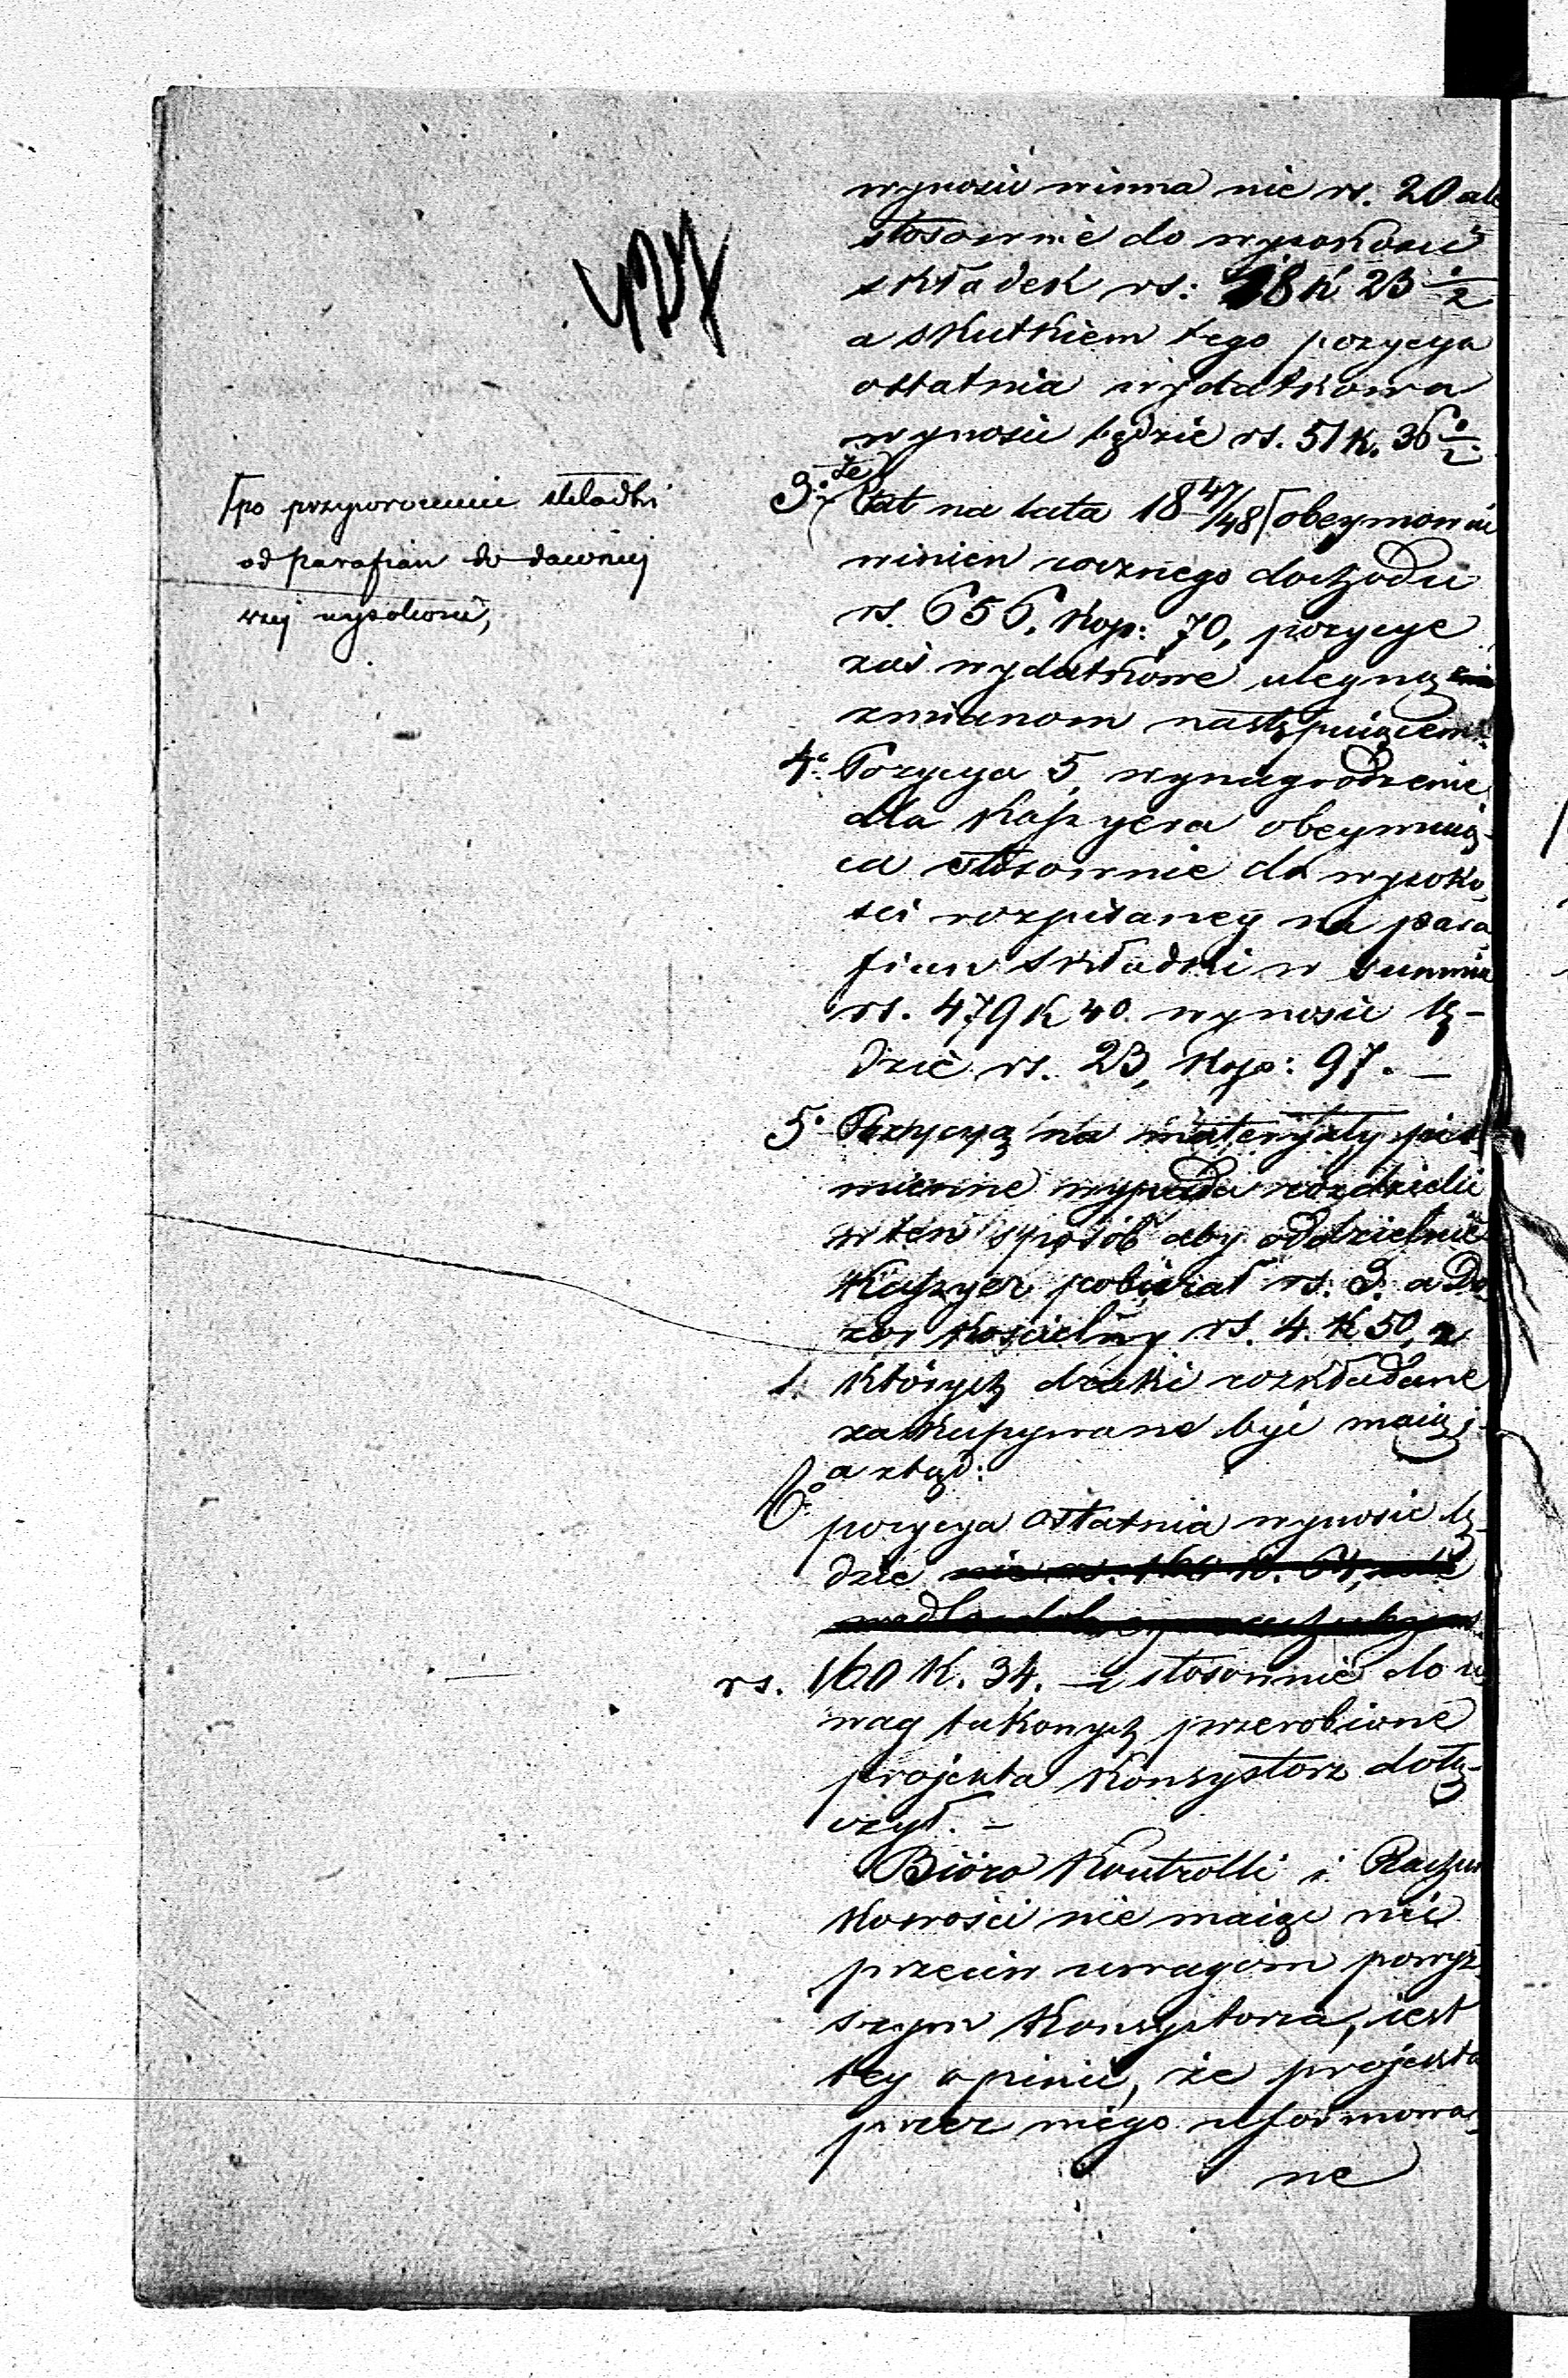 wynosić winna nie rs. 20 ale
stosownie do wysokości
składek rs: 18 K 23 ½
a skutkiem tego pozycya
ostatnia wydatkowa
wynosić będzie rs. 51 K. 36 ½.
3° Etat na lata 18 47/48 [obeymować
[po przywroceniu składki
od parafian do dawniej
szej wysokości,
winien rocznego dochodu
rs. 656, Kop: 70, pozycye
zaś wydatkowe ulegną
zmianom następuiącem:
4° Pozycya 5, wynagrodzenie
dla Kassyera obeymuią-
ca stosownie do wysoko,
ści rozpisaney na para
fian składki w summie
rs. 479 K 40. wynosić bę-
dzie rs. 23, Kop: 97. —
5° Pozycyą na materyały piś
mienne wypada rozdzielić
w ten sposób aby oddzielnie
Kassyer pobierał rs. 3. a Do
zór Kościelny rs. 4. K 50, z
których druki rozkładane
zakupywane być maią;
a ztąd:
6° pozycya ostatnia wynosić bę-
dzie
rs. 160 K. 34. — stosownie do u
wag takowych przerobione
projekta Konsystorz dołą-
czył. —
Bióro Kontrolli i Rachun
kowości nie maiąc nic
przeciw uwagom powyż
szym Konsystorza, iest
tey opinii, że projekta
przez niego uformowa-
ne